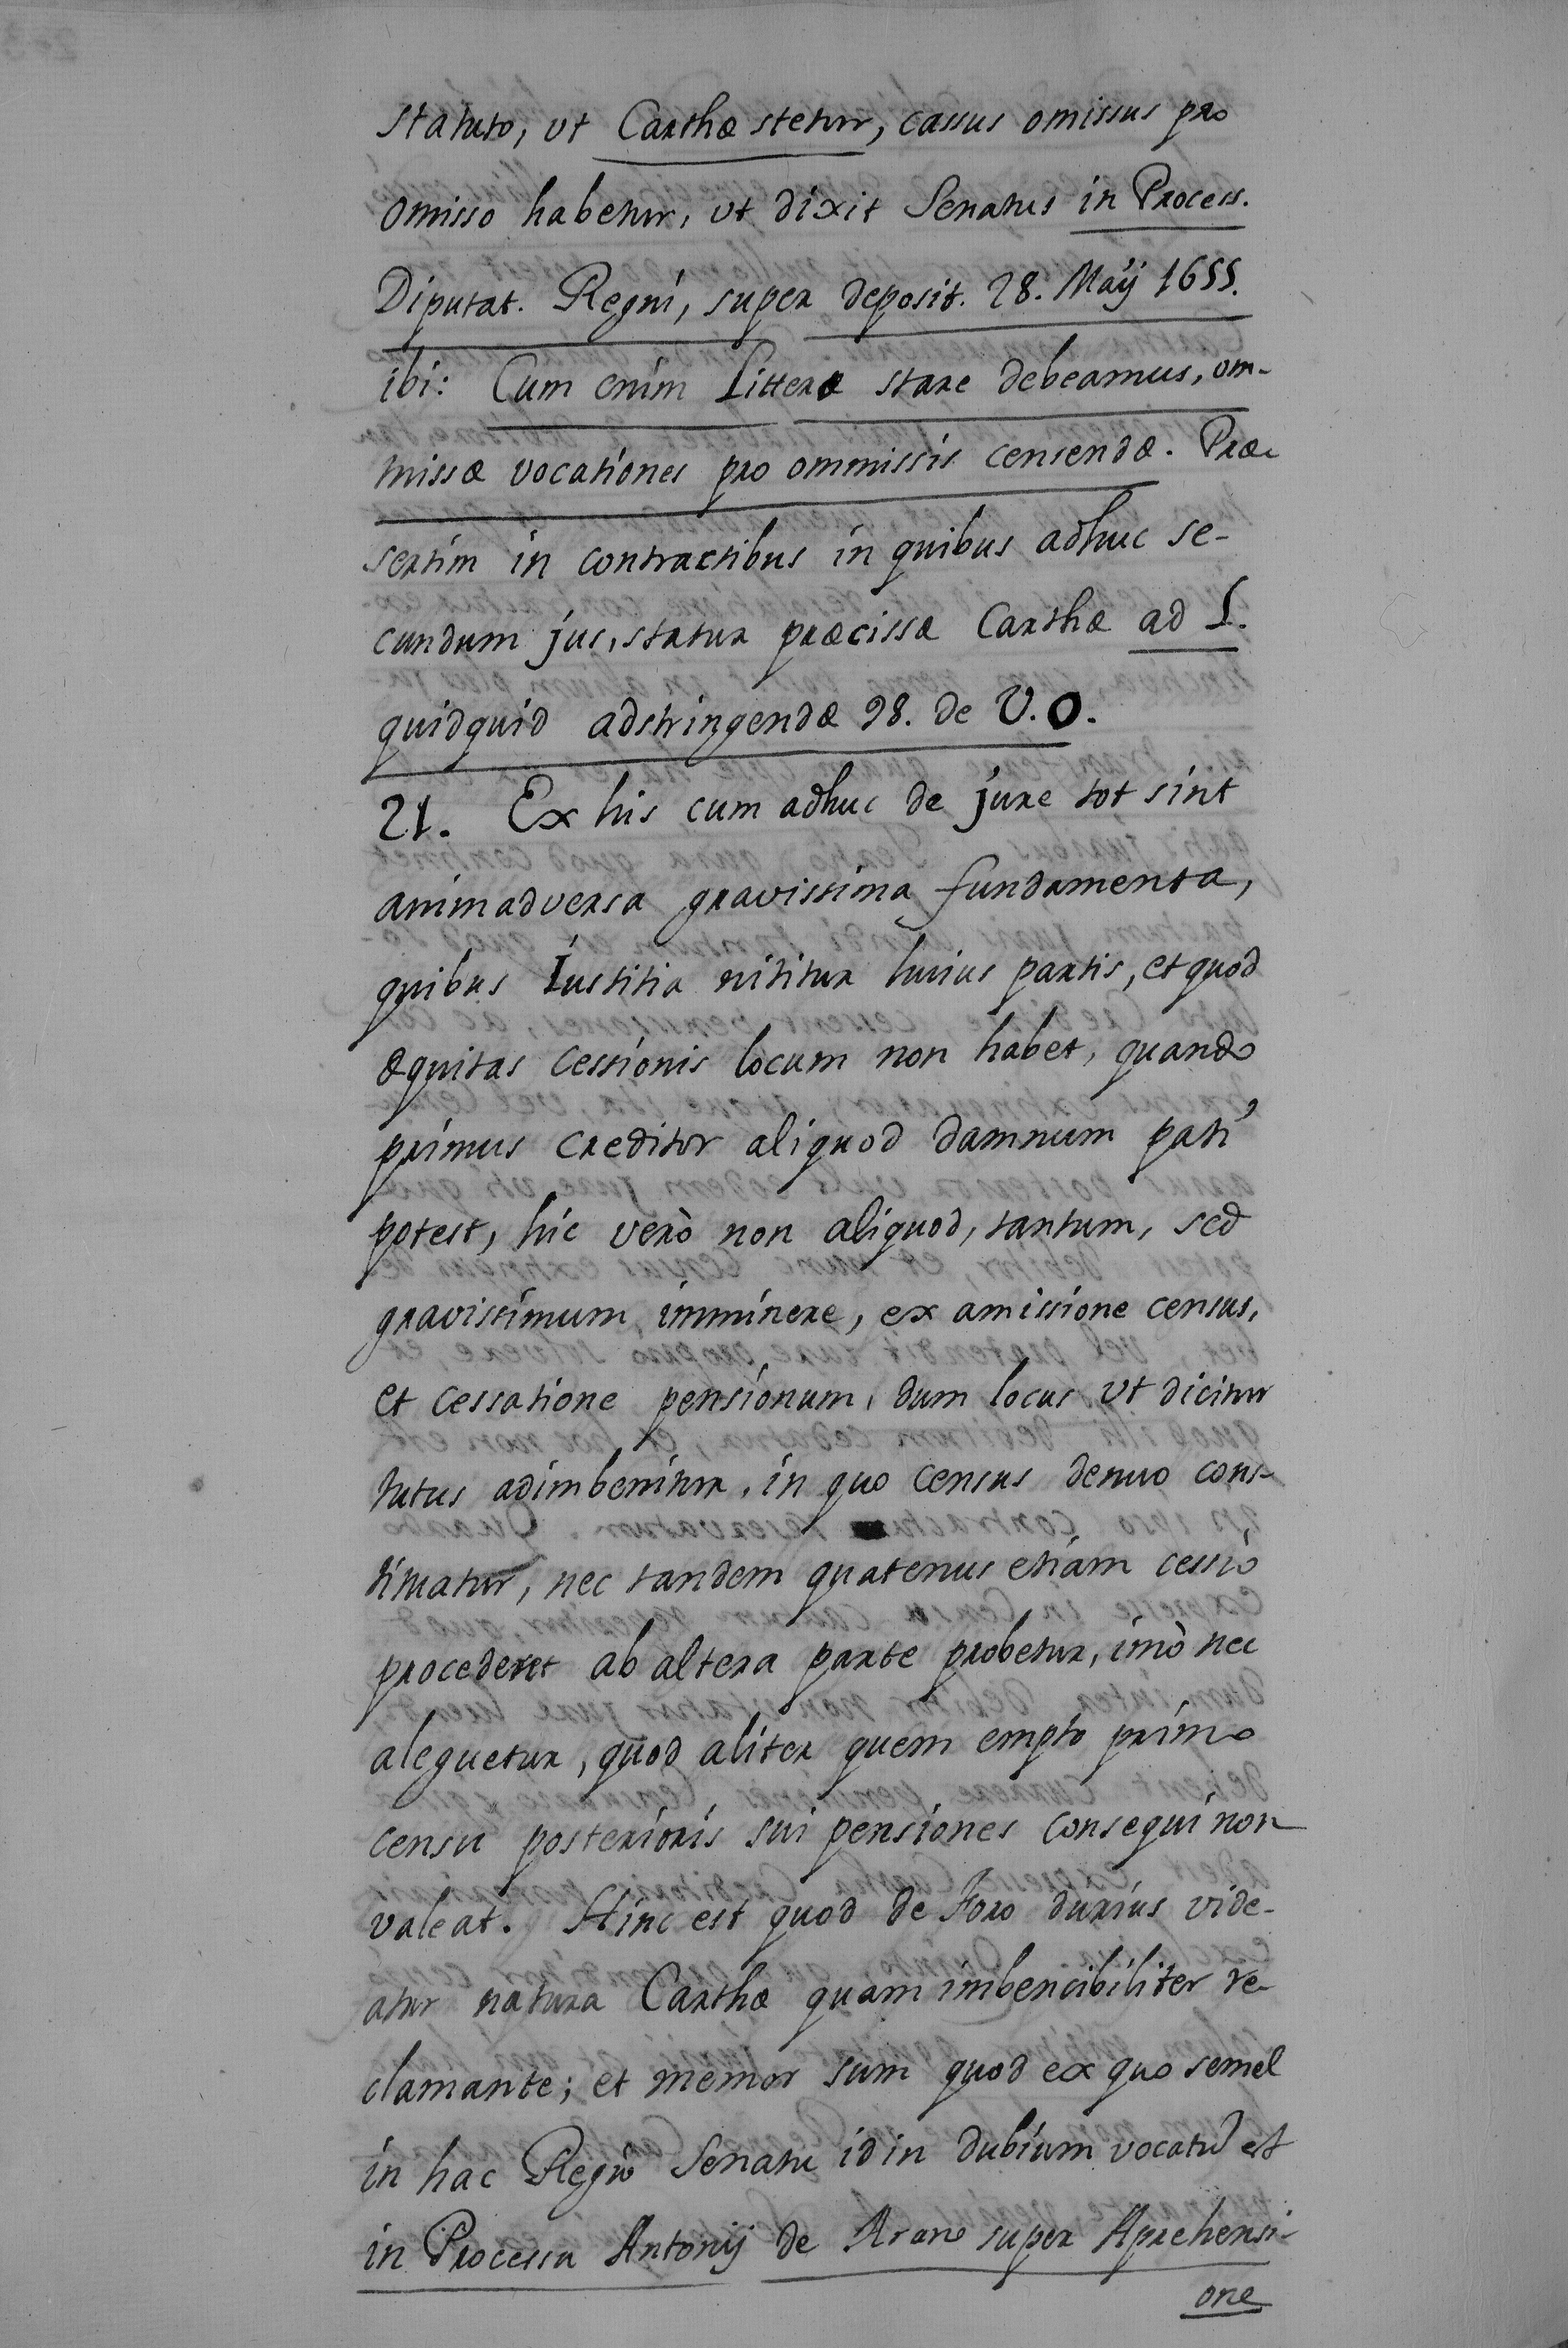 statuto, ut Carthæ stetur, cassus omissus pro
omisso habetur, ut dixit Senatus in Process.
Diputat. Regni, super deposit. 28. Maÿ 1655.
ibi: Cum enim Litteræ stare debeamus, om-
missæ vocationes pro ommissis censendæ. Præ-
sertim in contractibus in quibus adhuc se-
cundum jus, statur præcissæ Carthæ ad L.
quidquid adstringendæ 98. de V.O.
21. Ex his cum adhuc de jure tot sint
animadversa gravissima fundamenta,
quibus Iustitia nititur huius partis, et quod
æquitas cessionis locum non habet, quando
primus creditor aliquod damnum pati
potest, hic verò non aliquod, tantum, sed
gravissimum imminere, ex amissione census,
et cessatione pensionum, dum locus ut dicitur
tutus adimbenitur, in quo census denuo cons-
tituatur, nec tandem quatenus etiam cessio
procederet ab altera parte probetur, imò nec
aleguetur, quod aliter quem empto primo
censu posterioris sui pensiones consequi non
valeat. Hinc est quod de Foro durius vide-
atur natura Carthæ quam imbencibiliter re-
clamante; et memor sum quod ex quo semel
in hac Regio Senatu id in dubium vocatũ est
in Processu Antonij de Arano super Aprehensi-
one